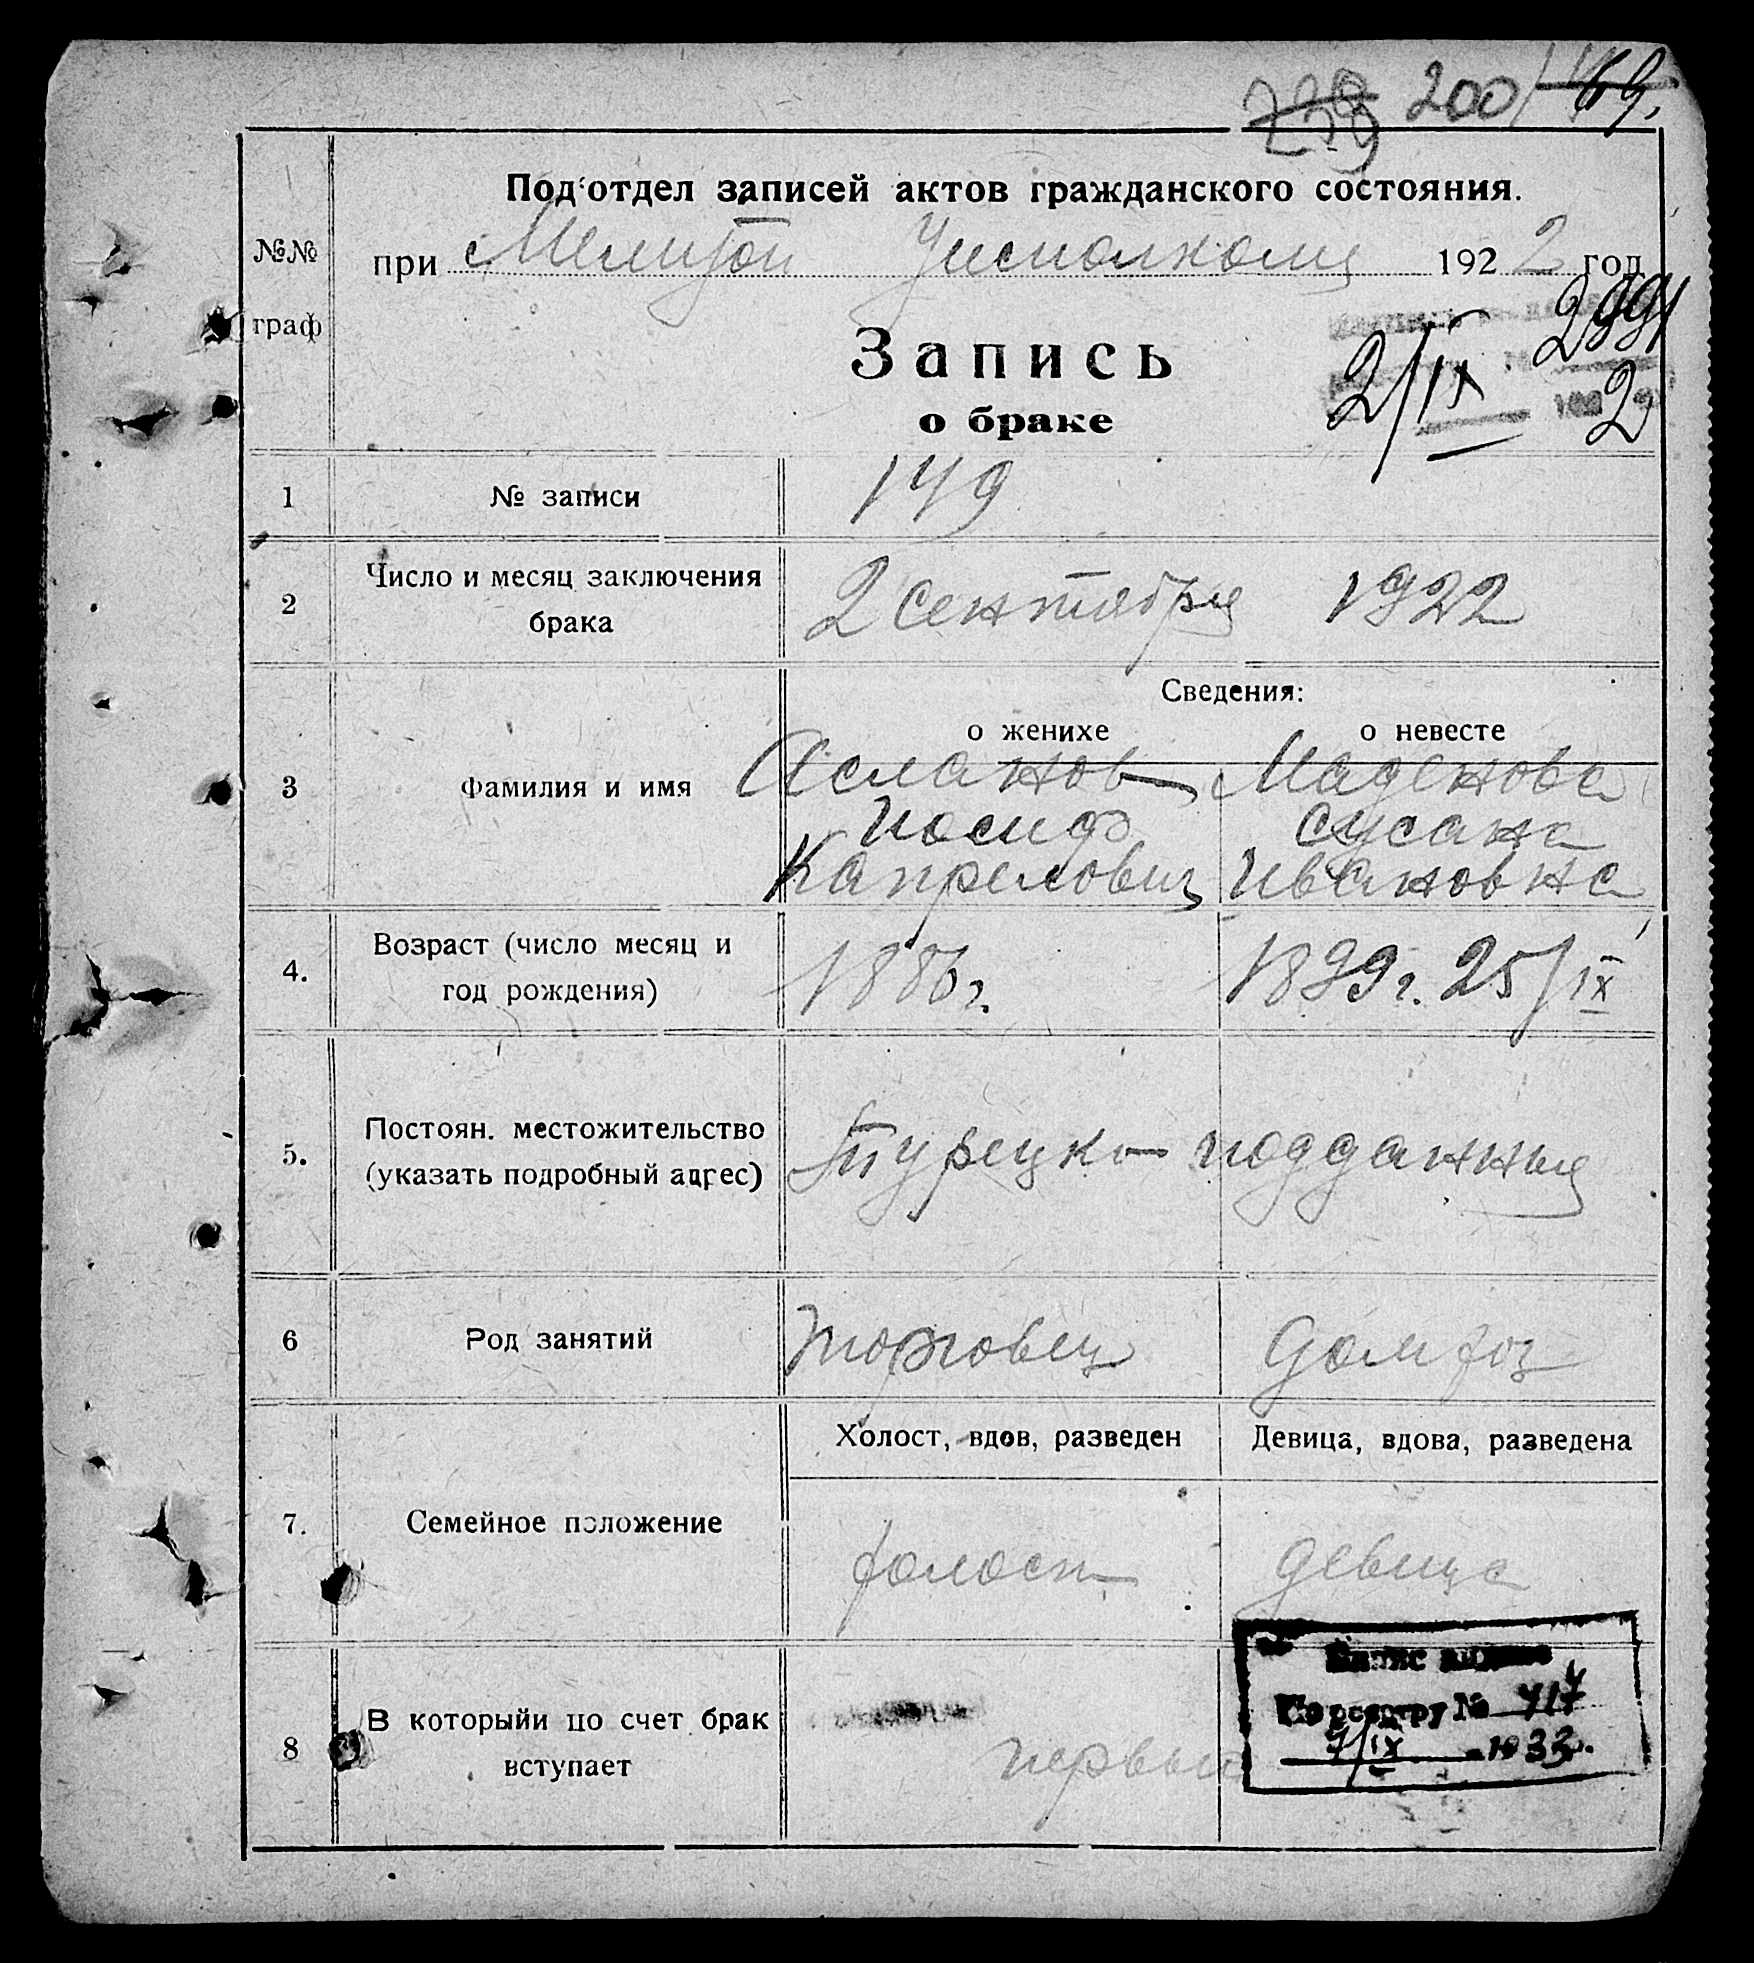 239 200/ 69.
Под'отдел записей актов гражданского состояния.
№№ граф
при Мелитоп Уисполкоме 1922 год
2991
Запись
2/IX 2
о браке
1 № записи 149
2 Число и месяц заключения
брака
2 сентября 1922
Сведения:
о женихе о невесте
3 Фамилия и имя
Асланов Маденова
Иосиф Сусана
Капрелович Ивановна
4. Возраст (число месяц и
год рождения)
1886 г. 1899 г. 25/IX
5. Постоян. местожительство
(указать подробный адрес)
Турецко-подданные
6 Род занятий торговец домхоз
Холост, вдов, разведен Девица, вдова, разведена
7. Семейное положение
холост девица
8 В которыйи по счет брак
вступает
первый
По реестру № 717
7/IX 1933.